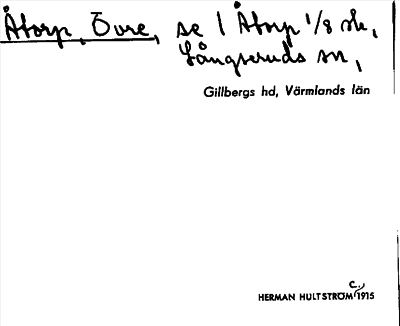 Åtorp, Övre, se 1 Åtorp 1/8 sk,
Långseruds sn,
Gillbergs hd, Värmlands län
c.
HERMAN HULTSTRÖM/1915